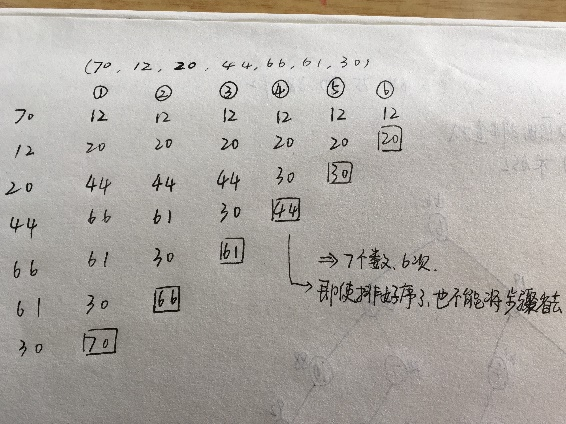 (70, 12, 20, 44, 66, 61, 30)
① ② ③ ④ ⑤ ⑥
70 12 12 12 12 12 12
12 20 20 20 20 20 20
20 44 44 44 30 30
44 66 61 30 44
66 61 30 61
61 30 66
30 70
⇒ 7个数、6次.
即使排好序了,也不能将步骤省去